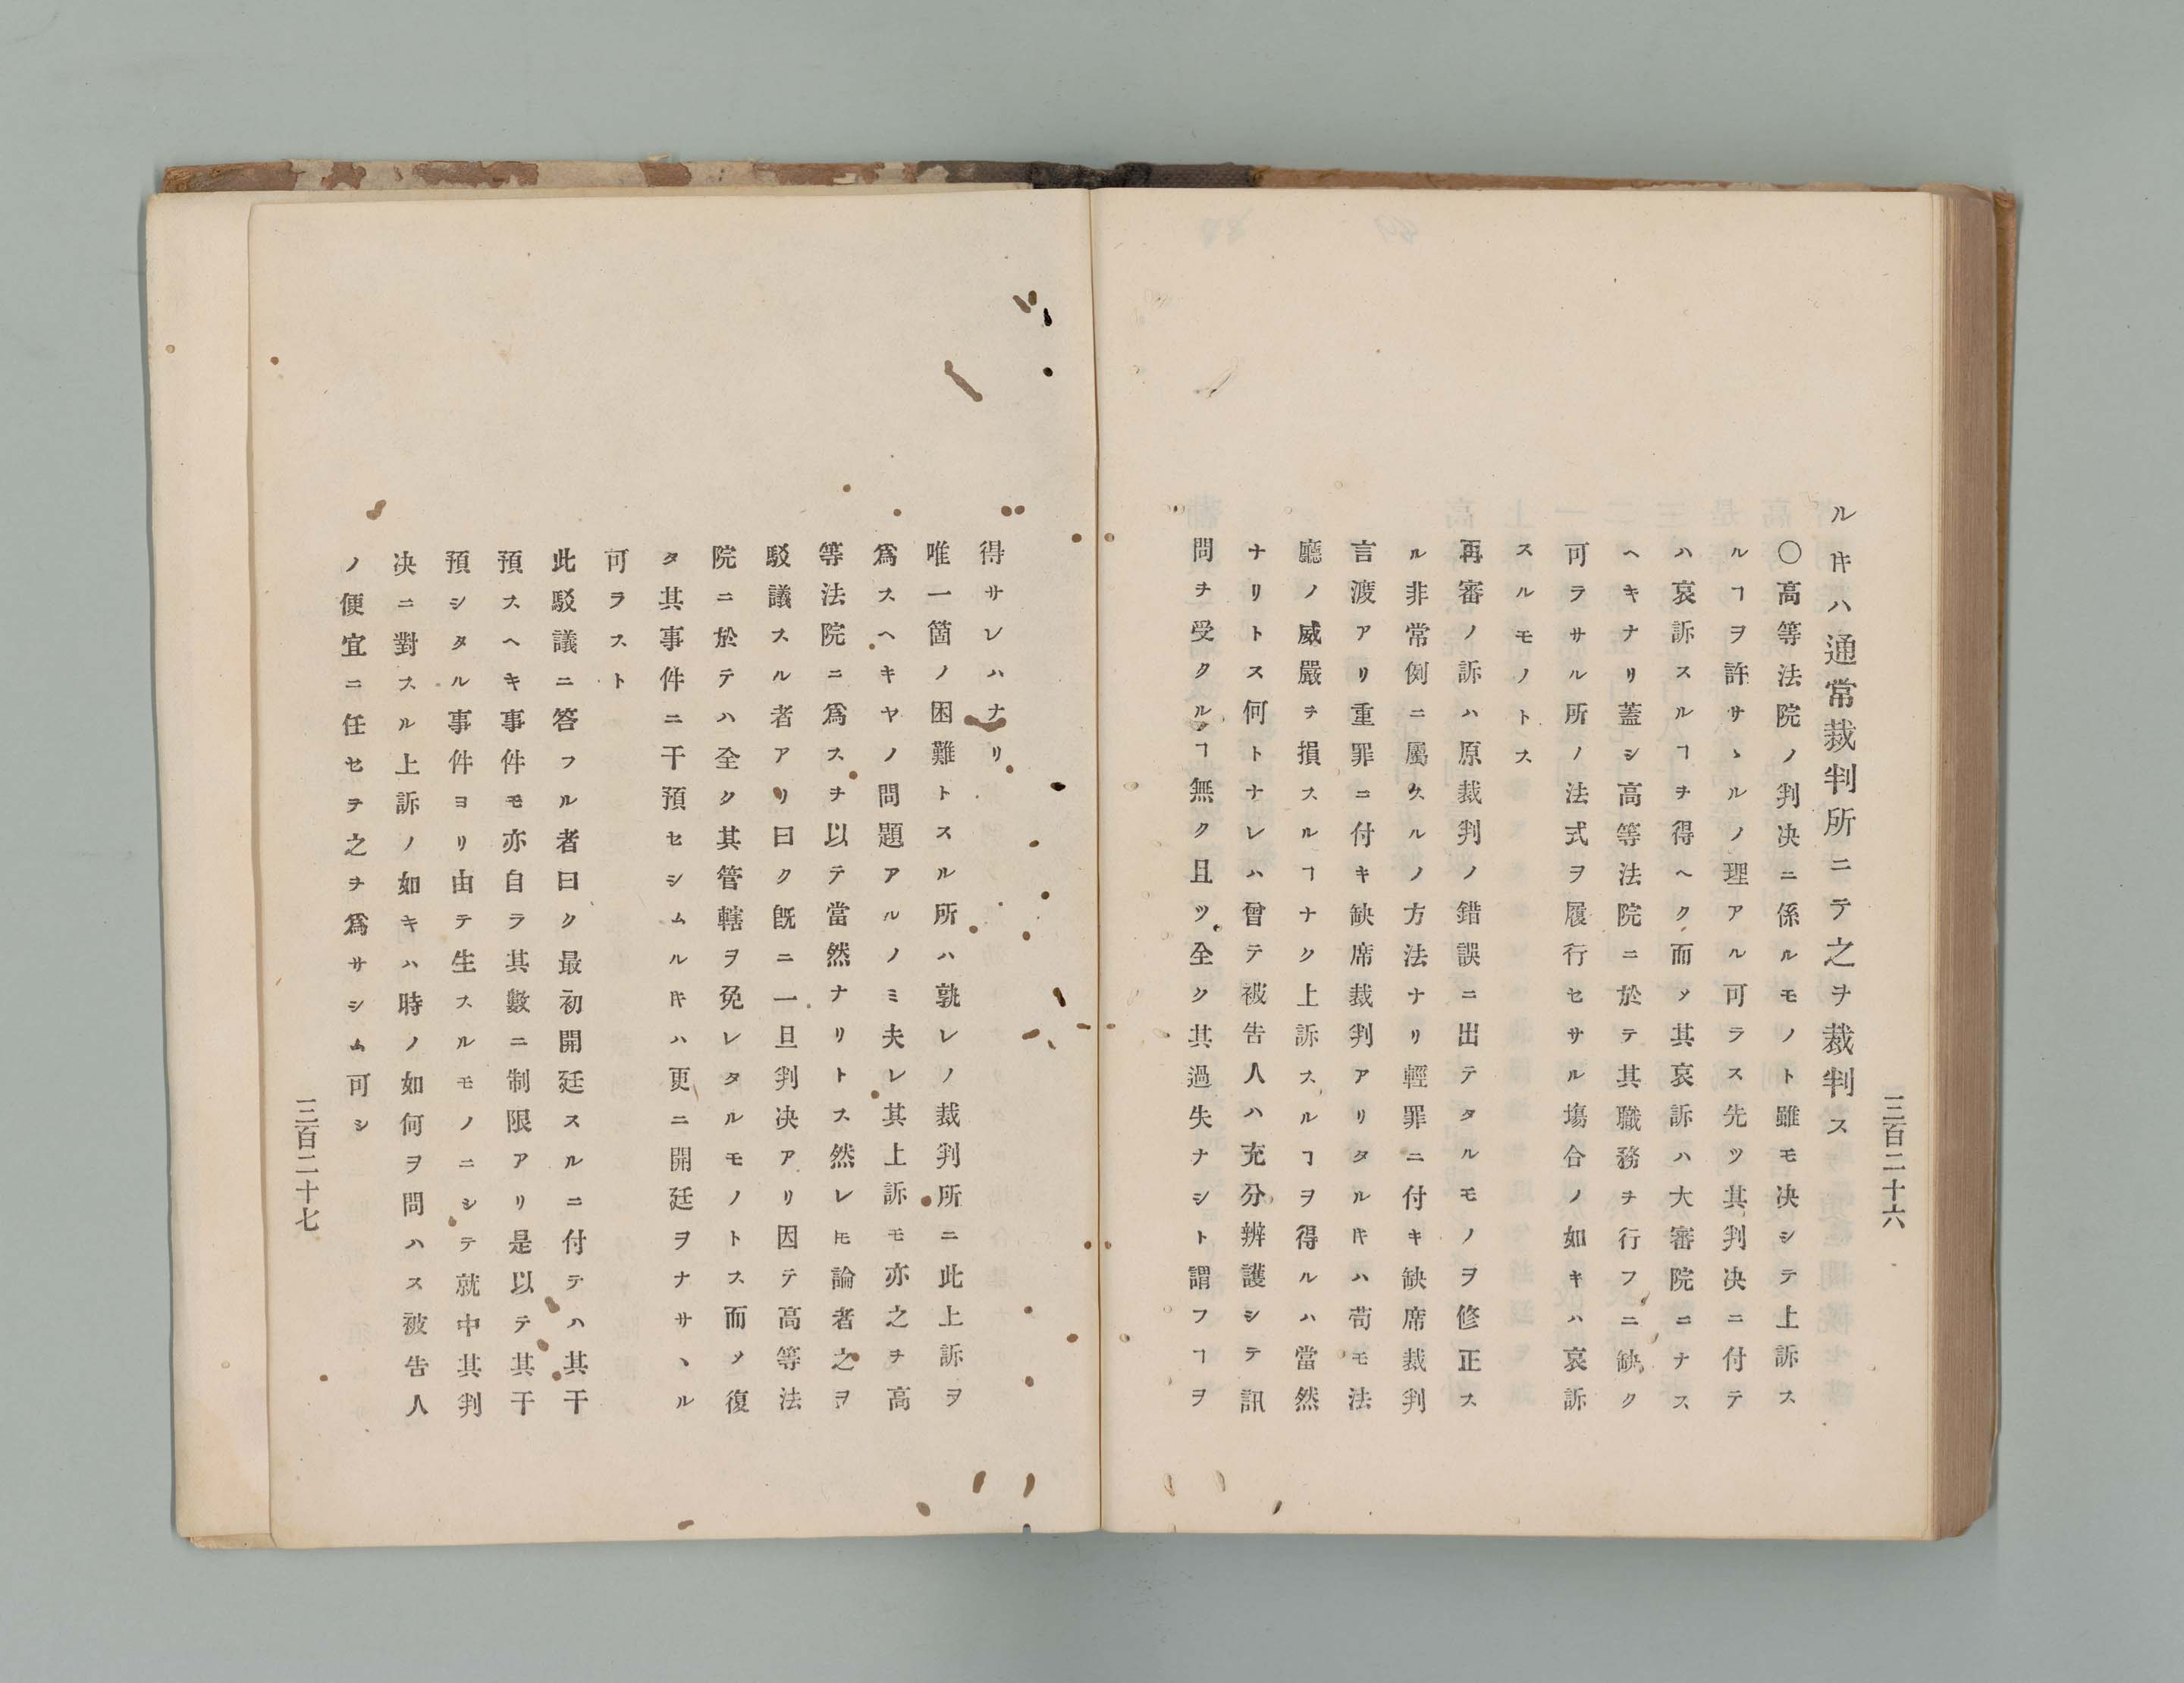 三百二十六
ルヿハ通常裁判所ニテ之ヲ裁判ス
〇高等法院ノ判决ニ係ルモノト雖モ决シテ上訴ス
ルヿヲ許サヽルノ理アル可ラス先ツ其判决ニ付テ
ハ哀訴スルヿヲ得ヘク而〆其哀訴ハ大審院ニナス
ヘキナリ蓋シ高等法院ニ於テ其職務ヲ行フニ缺ク
可ラサル所ノ法式ヲ履行セサル塲合ノ如キハ哀訴
スルモノトス
再審ノ訴ハ原裁判ノ錯誤ニ出テタルモノヲ修正ス
ル非常例ニ屬スルノ方法ナリ輕罪ニ付キ缺席裁判
言渡アリ重罪ニ付キ缺席裁判アリタル𪜈ハ苟モ法
廳ノ威嚴ヲ損スルヿナク上訴スルヿヲ得ルハ當然
ナリトス何トナレハ曾テ被告人ハ充分辨護シテ訊
問ヲ受クルヿ無ク且ツ全ク其過失ナシト謂フヿヲ
得サレハナリ
唯一箇ノ困難トスル所ハ孰レノ裁判所ニ此上訴ヲ
爲スヘキヤノ問題アルノミ夫レ其上訴モ亦之ヲ高
等法院ニ爲スヲ以テ當然ナリトス然レ𪜈論者之ヲ
駁議スル者アリ曰ク既ニ一旦判决アリ因テ高等法
院ニ於テハ全ク其管轄ヲ免レタルモノトス而〆復
タ其事件ニ干預セシムル𪜈ハ更ニ開廷ヲナサヽル
可ラスト
此駁議ニ答フル者曰ク最初開廷スルニ付テハ其干
預スヘキ事件モ亦自ラ其數ニ制限アリ是以テ其干
預シタル事件ヨリ由テ生スルモノニシテ就中其判
决ニ對スル上訴ノ如キハ時ノ如何ヲ問ハス被告人
ノ便宜ニ任セテ之ヲ爲サシム可シ
三百二十七